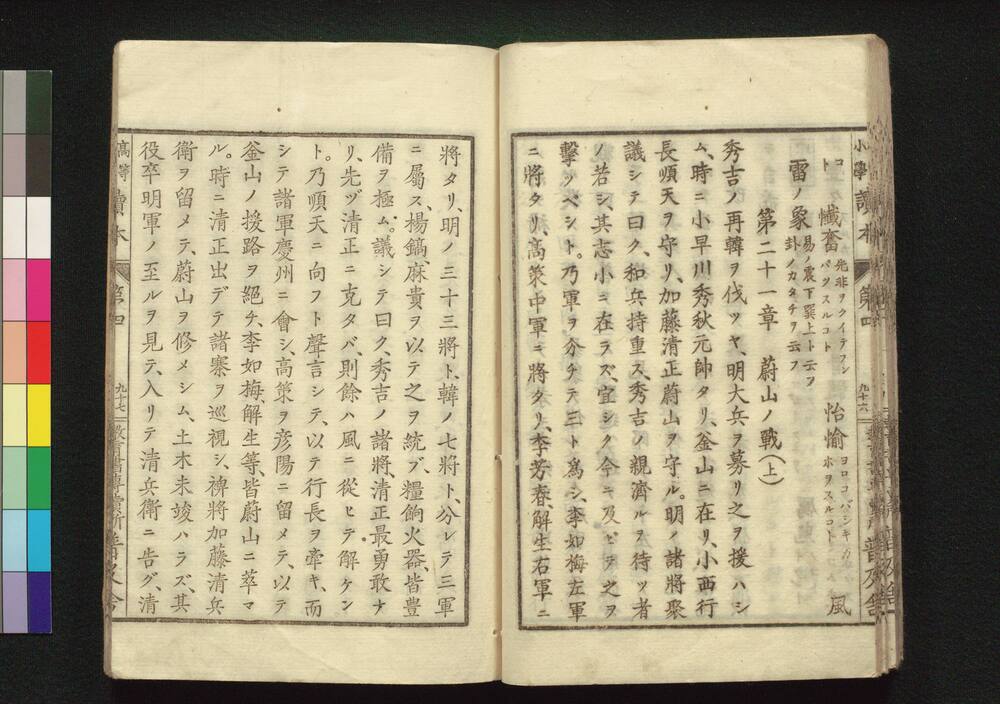 小學讀本 第四 九十六 普及舎
コト 懺奮 先非ヲクイテフンパツスルコト 怡愉 ヨロコバシキカホヲスルコト 風
雷ノ象 易ノ震下巽上ト云フ卦ノカタチヲ云フ
第二十一章 蔚山ノ戰(上)
秀吉ノ再韓ヲ伐ツヤ、明大兵ヲ募リ之ヲ援ハシ
ム、時ニ小早川秀秋元帥タリ、釜山ニ在リ、小西行
長順天ヲ守リ、加藤清正蔚山ヲ守ル。明ノ諸將聚
議シテ曰ク、和兵持重ス、秀吉ノ親濟ルヲ待ツ者
ノ若シ、其志小ニ在ラズ、宜シク今ニ及ビテ之ヲ
擊ツベシト。乃軍ヲ分チテ三ト爲シ、李如梅左軍
ニ將タリ、高策中軍ニ將タリ、李芳春、解生右軍ニ
將タリ、明ノ三十三將ト、韓ノ七將ト、分レテ三軍
ニ屬ス、楊鎬、麻貴ヲ以テ之ヲ統ブ、糧餉火器、皆豊
備ヲ極ム。議シテ曰ク、秀吉ノ諸將、清正最勇敢ナ
リ、先ヅ清正ニ克タバ、則餘ハ風ニ從ヒテ解ケン
ト。乃順天ニ向フト聲言シテ、以テ行長ヲ牽キ、而
シテ諸軍慶州ニ會シ、高策ヲ彦陽ニ留メテ、以テ
釜山ノ援路ヲ絕チ、李如梅、解生等、皆蔚山ニ萃マ
ル。時ニ清正出デテ諸寨ヲ巡視シ、裨將加藤清兵
衛ヲ留メテ、蔚山ヲ修メシム、土木未竣ハラズ、其
役卒明軍ノ至ルヲ見テ、入リテ清兵衛ニ告グ、清
高等讀本 第四 九十七 教育書專賣所 普及舎